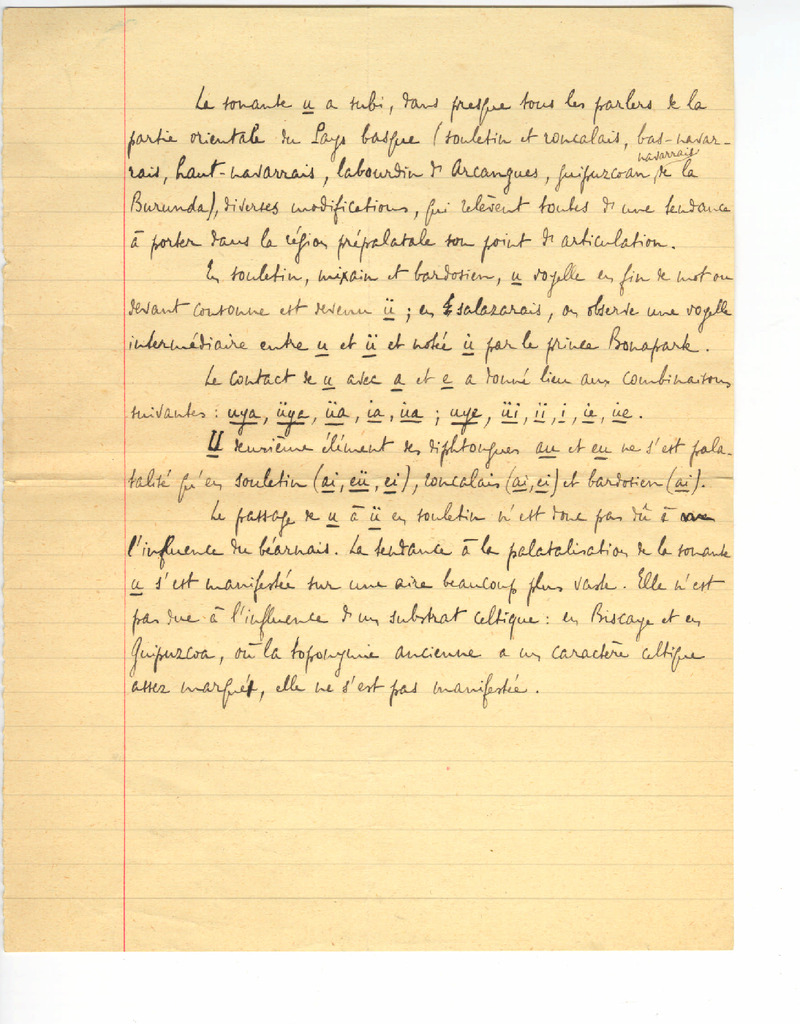 La sonante u a subi, dans presque tous les parlers de la
partie orientale du Pays basque (souletin et roncalais, bas-navar-
navarrais
rais, haut-navarrais, labourdin d'Arcangues, guipuzcoan de la
Burunda), diverses modifications, qui relèvent toutes d'une tendance
à porter dans la région prépalatale son point d'articulation.
En souletin, mixain et bardosien, u voyelle en fin de mot ou
devant consonne est devenu ü ; en salazarais, on observe une voyelle
intermédiaire entre u et ü et notée u̇ par le prince Bonaparte.
Le contact de u avec a et e a donné lieu aux combinaisons
suivantes : uya, üya, üa, ia, u̇a ; uye, üi, ii, i, ie, u̇e.
U deuxième élément des diphtongues au et eu ne s'est pala-
talisé qu'en souletin (ai, eü, ei), roncalais (ai, ei) et bardosien (ai).
Le passage de u à ü en souletin n'est donc pas dû à
l'influence du béarnais. La tendance à la palatalisation de la sonante
u s'est manifestée sur une aire beaucoup plus vaste. Elle n'est
pas due à l'influence d'un substrat celtique : en Biscaye et en
Guipuzcoa, où la toponymie ancienne a un caractère celtique
assez marqué, elle ne s'est pas manifestée.